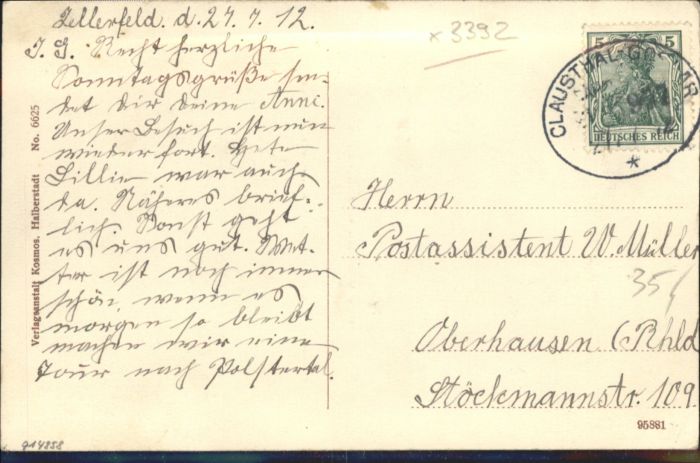 Zellerfeld. d. 27.7.12.
J. G. Recht herzliche
Sonntagsgrüße sen-
det dir deine Anni.
Unser Besuch ist nun
wieder fort.
Lillie war auch
da. Näheres brief-
lich. Sonst geht
es uns gut. Wet-
ter ist noch immer
schön, wenn es
morgen so bleibt
machen wir eine
Tour nach Polstertal.
x3392
5 5
DEUTSCHES REICH
CLAUSTHAL-
Herrn
Postassistent W. Müller
35
Oberhausen (Rhld
Stöckmannstr. 109.
95881
Verlagsanstalt Kosmos, Halberstadt No. 6625
914858